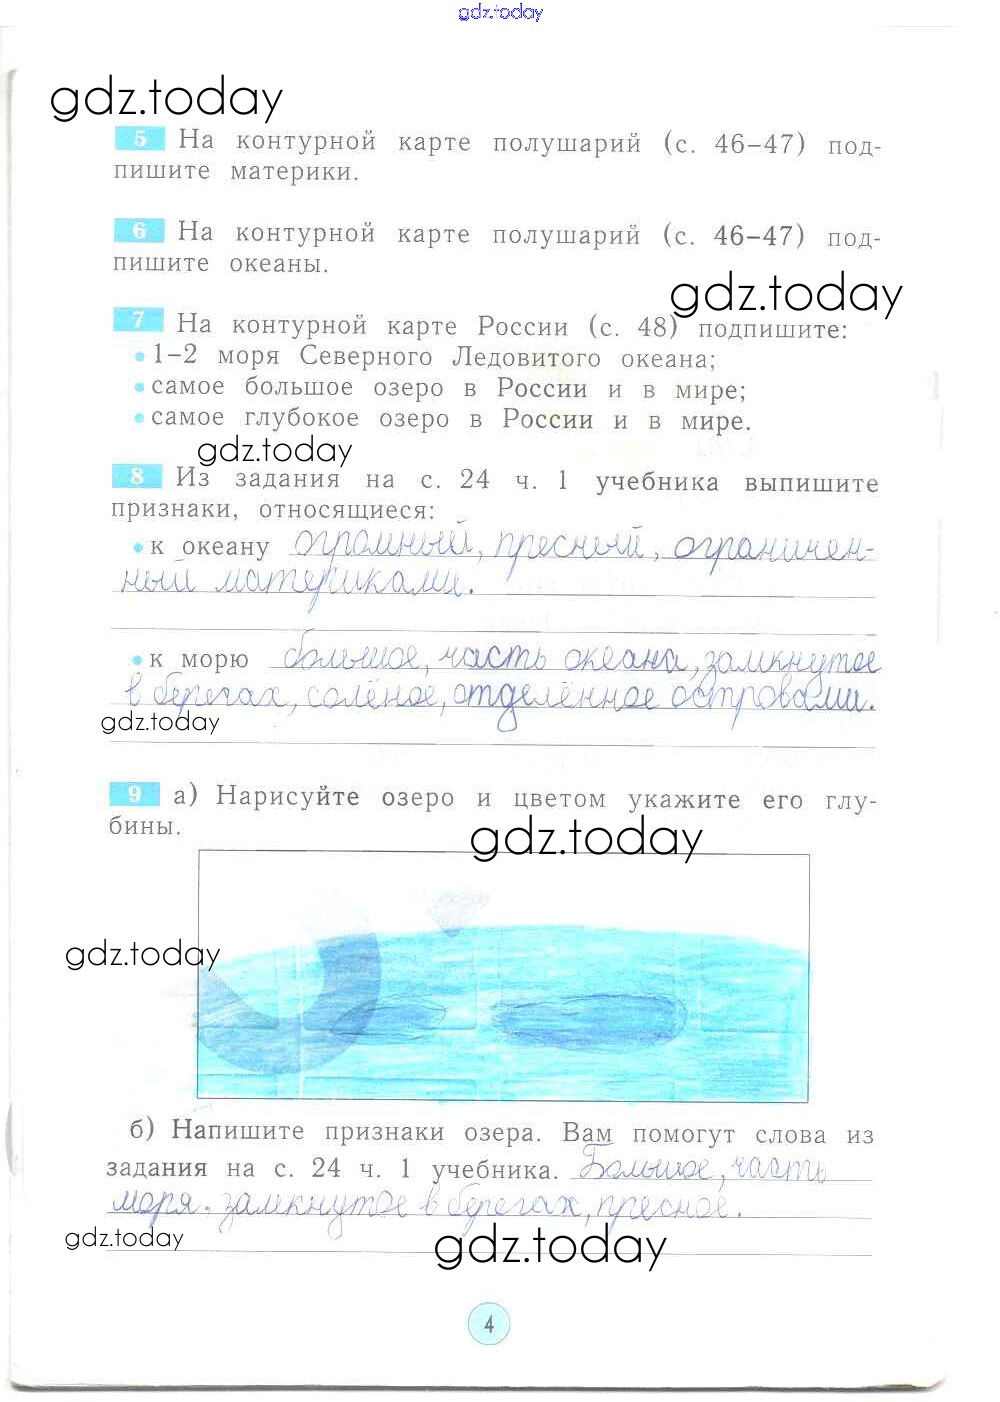 gdz.today
gdz.today
5 На контурной карте полушарий (с. 46–47) под-
пишите материки.
6 На контурной карте полушарий (с. 46–47) под-
пишите океаны.
gdz.today
7 На контурной карте России (с. 48) подпишите:
• 1–2 моря Северного Ледовитого океана;
• самое большое озеро в России и в мире;
• самое глубокое озеро в России и в мире.
gdz.today
8 Из задания на с. 24 ч. 1 учебника выпишите
признаки, относящиеся:
• к океану огромный, пресный, ограничен-
ный материками.
• к морю большое, часть океана, замкнутое
в берегах, солёное, отделённое островами.
gdz.today
9 а) Нарисуйте озеро и цветом укажите его глу-
бины.
gdz.today
gdz.today
б) Напишите признаки озера. Вам помогут слова из
задания на с. 24 ч. 1 учебника. Большое, часть
моря, замкнутое в берегах, пресное.
gdz.today
gdz.today
4